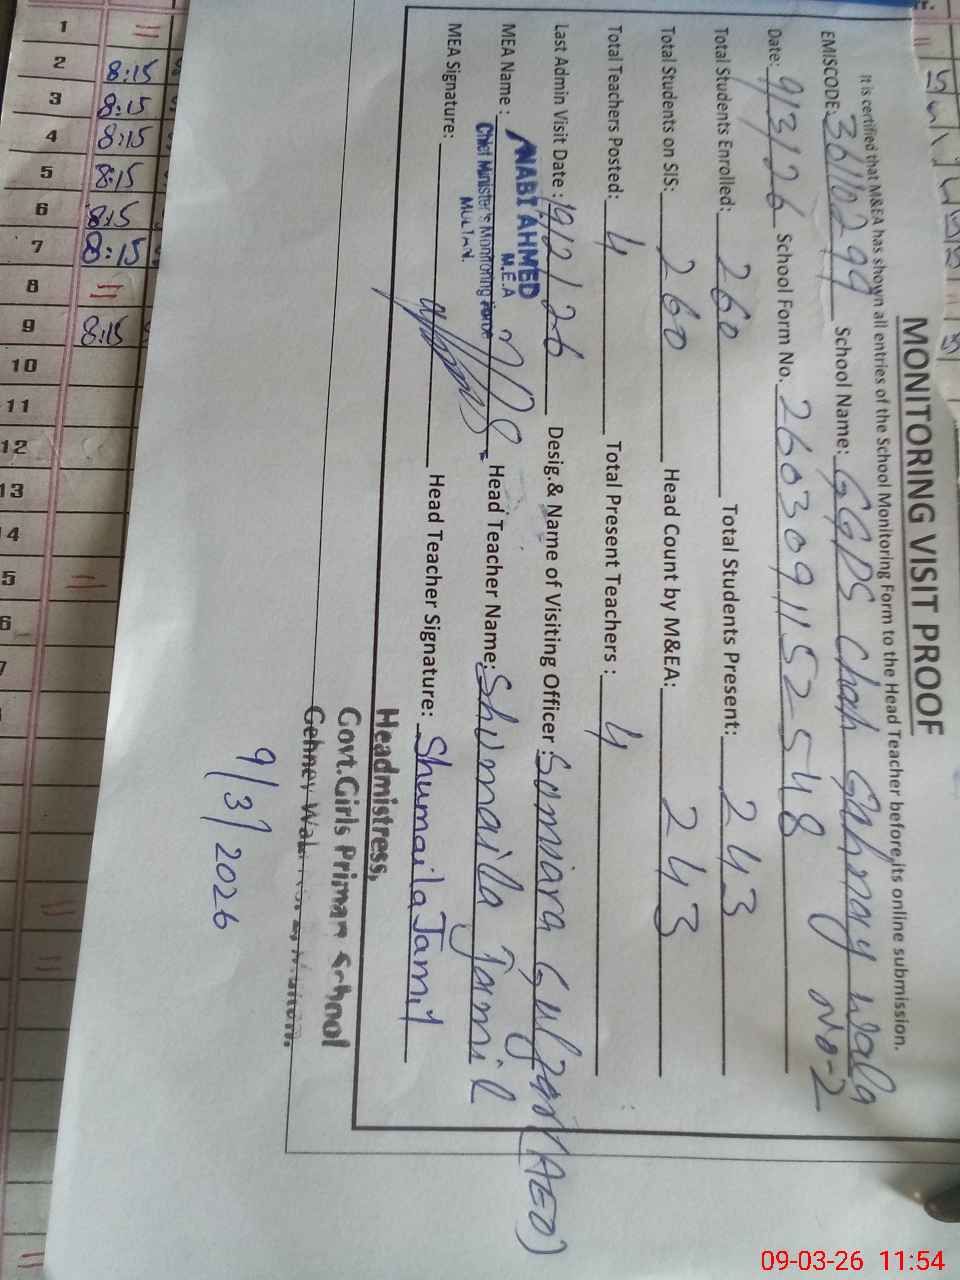 MONITORING VISIT PROOF
It is certified that M&EA has shown all entries of the School Monitoring Form to the Head Teacher before its online submission.
EMISCODE: 36110299 School Name: GGPS Chah Gahnay wala No-2
Date: 9/3/26 School Form No. 2603091152548
Total Students Enrolled: 260 Total Students Present: 243
Total Students on SIS: 260 Head Count by M&EA: 243
Total Teachers Posted: 4 Total Present Teachers : 4
Last Admin Visit Date : 19/2/26 Desig.& Name of Visiting Officer : Somiara Gulzar (AEO)
MEA Name : NABI AHMED Head Teacher Name: Shumaila Jamil
M.E.A
Chief Minister's Monitoring Force
MULTAN.
MEA Signature: Head Teacher Signature: Shumaila Jamil
Headmistress,
Govt.Girls Primary School
Gehney Wala No 2, Multan.
9/3/2026
1
2 8:15
3 8:15
4 8:15
5 8:15
6 8:15
7 8:15
8
9 8:15
10
11
12
13
09-03-26 11:54